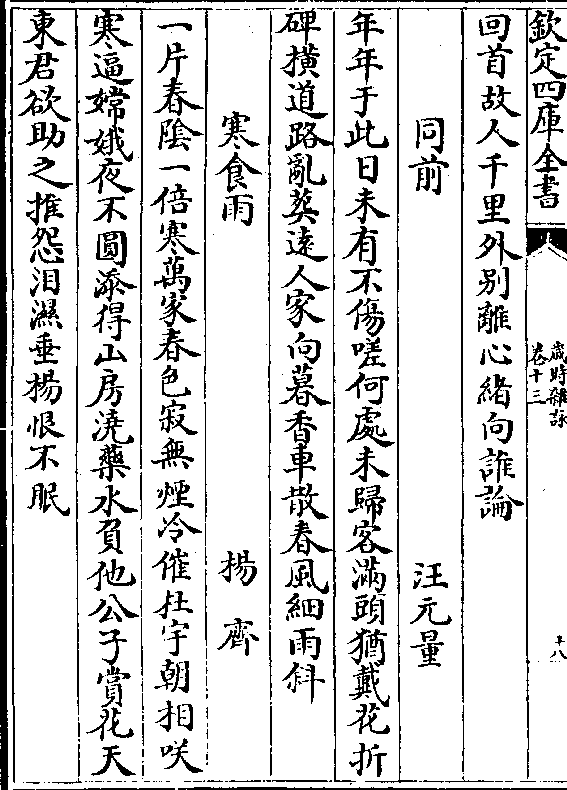 欽定四庫全書
歲時雜詠
卷十三
回首故人千里外别離心緒向誰論
同前 汪元量
年年于此日未有不傷嗟何處未歸客滿頭猶戴花折
碑横道路亂葬遠人家向暮香車散春風細雨斜
寒食雨 楊齊
一片春陰一倍寒萬家春色寂無煙冷催杜宇朝相咲
寒逼嫦娥夜不圓添得山房澆藥水負他公子賞花天
東君欲助之推怨泪濕垂楊恨不眠